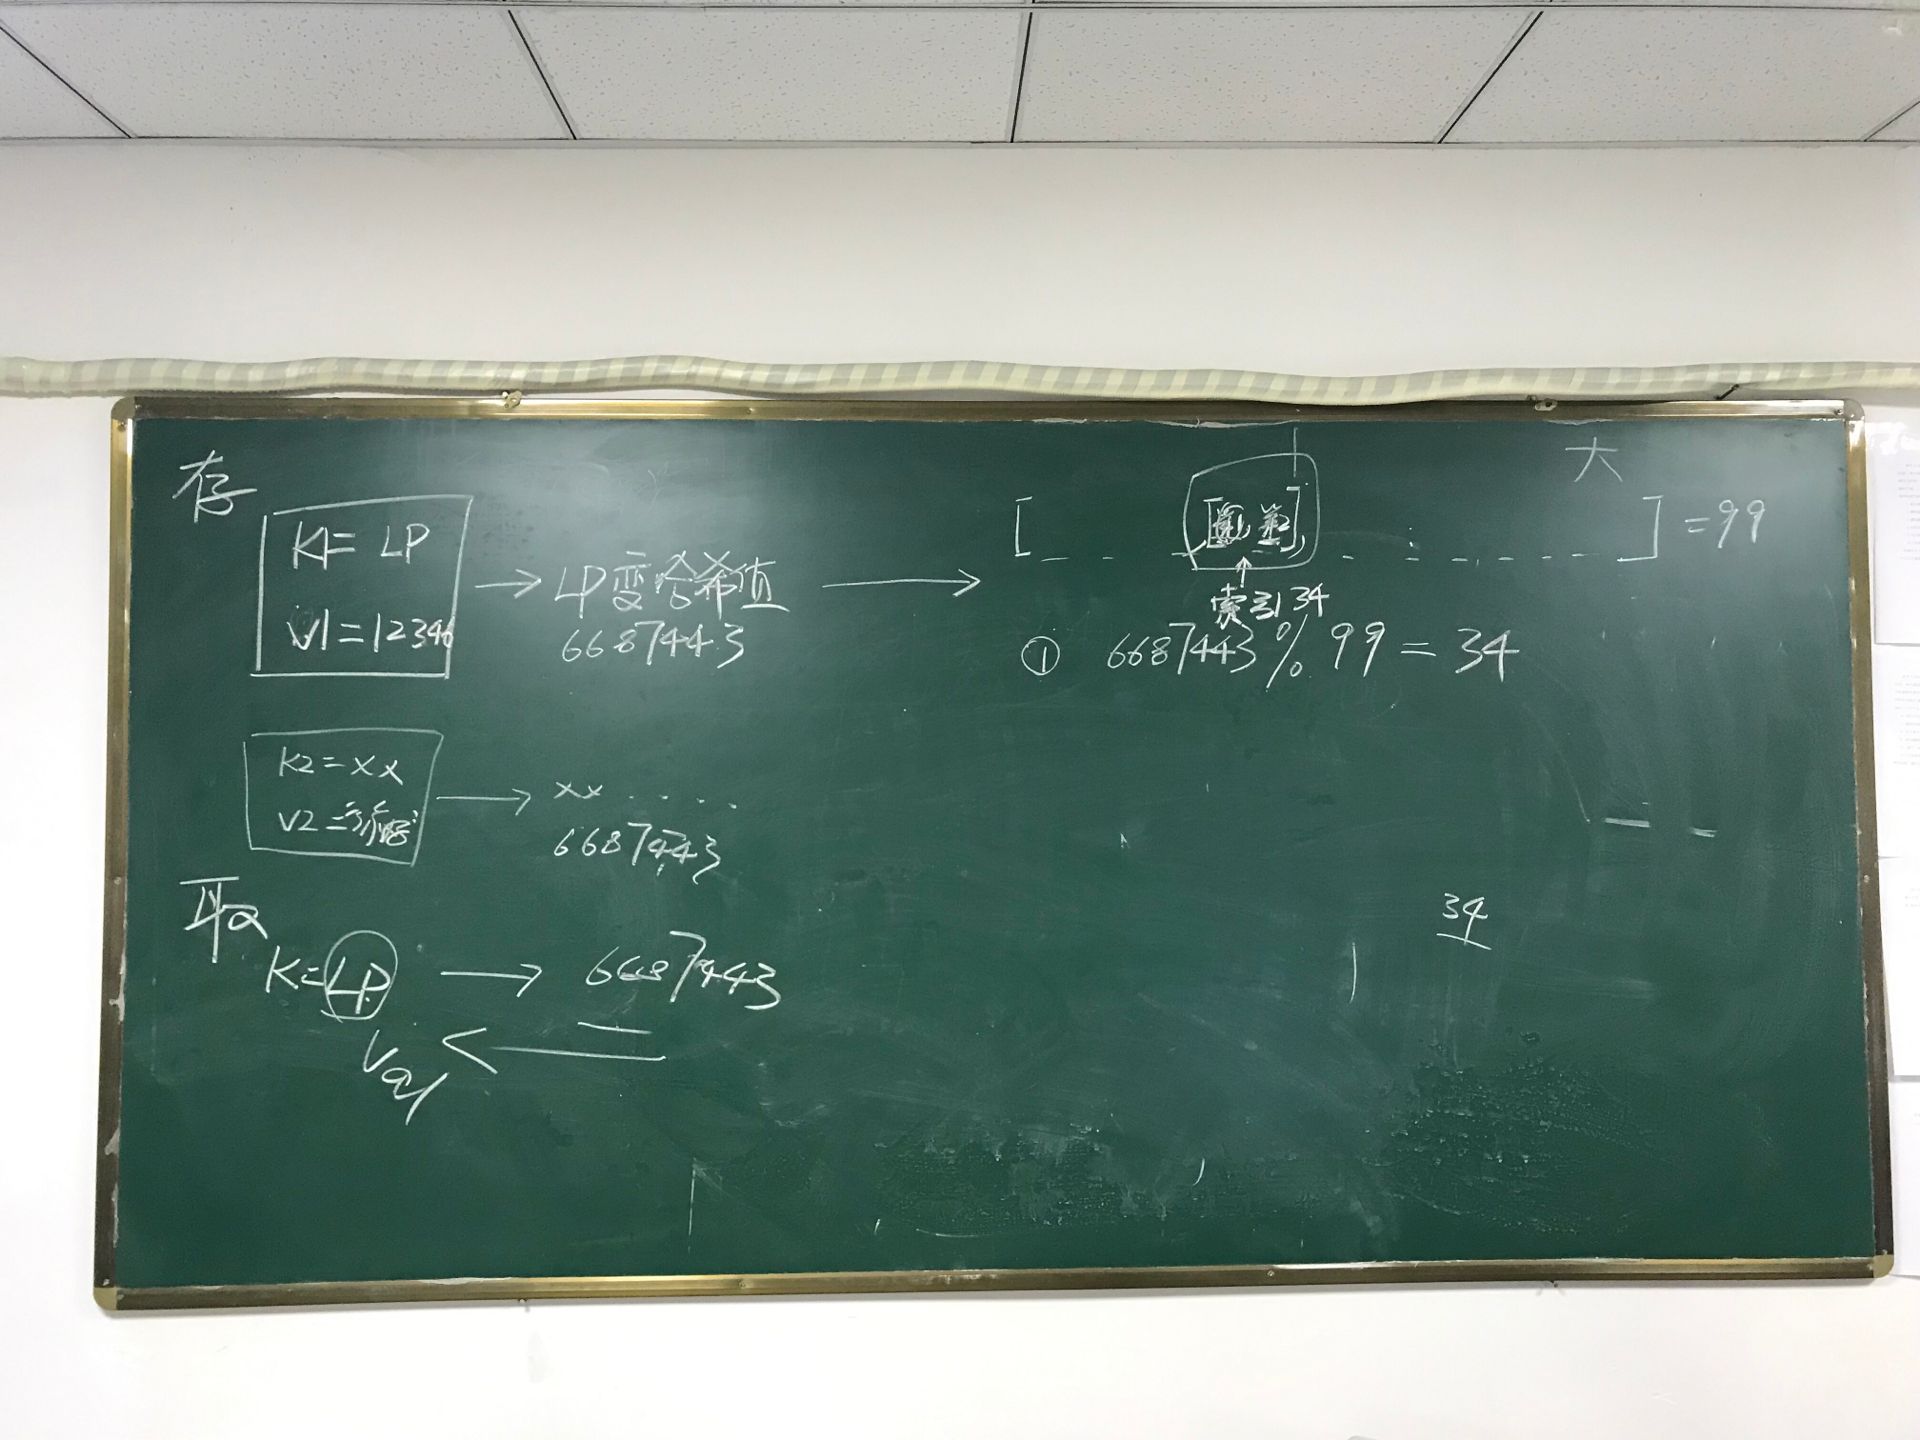 存
K1= LP
V1=12346
LP变哈希值
6687443
[ ] =99
大
索引34
① 6687443% 99 = 34
K2=XX
V2=
XX ....
6687443
取
K=LP
6687443
Val
34